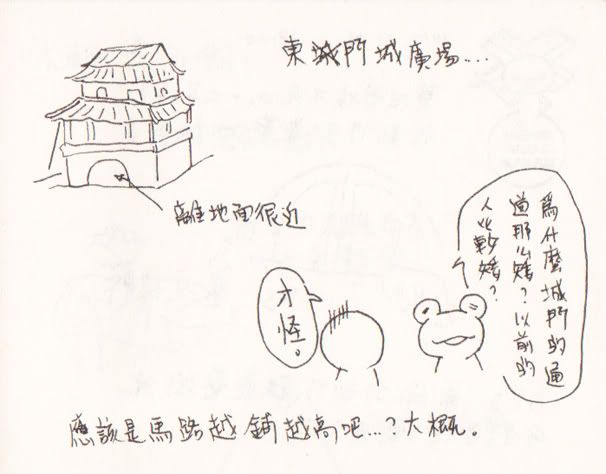 東城門城廣場....
離地面很近
為什麼城門的通
道那么矮？以前的
人比較矮？
才怪。
應該是馬路越鋪越高吧...？大概。